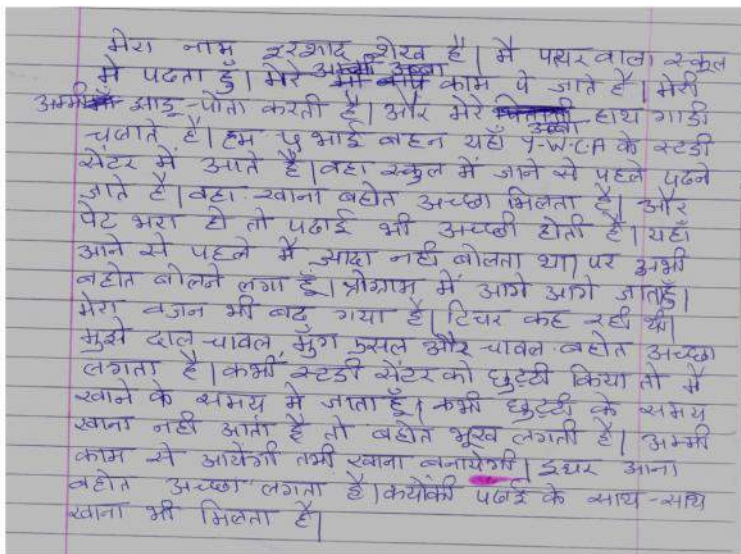 मेरा नाम इरशाद शेख है। मै पत्थरवाला स्कूल
में पढता हुँ। मेरे अम्मी अब्बा काम पे जाते है। मेरी
अम्मी झाडू-पोता करती है। और मेरे अब्बा हाथ गाडी
चलाते है। हम ५ भाई बहन यहाँ Y-W-C-A के स्टडी
सेंटर में आते है। वहा स्कुल में जाने से पहले पढने
जाते है। वहा खाना बहोत अच्छा मिलता है। और
पेट भरा हो तो पढाई भी अच्छी होती है। यहाँ
आने से पहले मै ज्यादा नही बोलता था। पर अभी
बहोत बोलने लगा हूँ। प्रोग्राम में आगे आगे जाताहूँ।
मेरा वजन भी बढ़ गया है। टिचर कह रही थी।
मुझे दाल-चावल, मुंग उसल और चावल बहोत अच्छा
लगता है। कभी स्टडी सेंटर को छुट्टी किया तो मै
खाने के समय मे जाता हूँ। कभी छुट्टी के समय
खाना नही आता है तो बहोत भूख लगती है। अम्मी
काम से आयेगी तभी खाना बनायेगी। इधर आना
बहोत अच्छा लगता है। क्योंकी पढाई के साथ-साथ
खाना भी मिलता है।